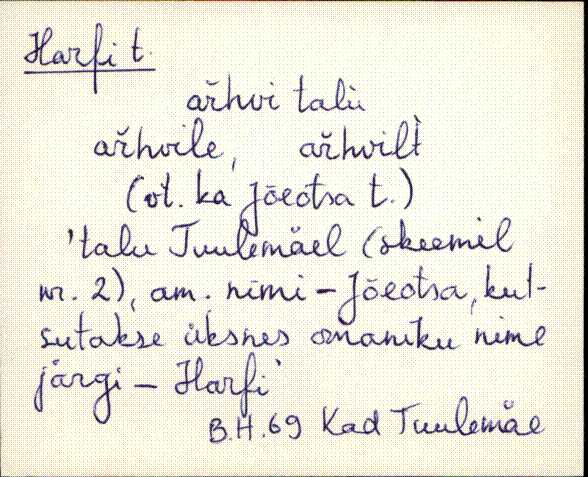 Harfi t.
ař̌hvi talù
ař̌hvile, ař̌hvilt̀
(vt. ka Jõeotsa t.)
'talu Tuulemäel (skeemil
nr. 2), am. nimi - Jõeotsa, kut-
sutakse üksnes omaniku nime
järgi - Harfi'
B.H. 69 Kad Tuulemäe